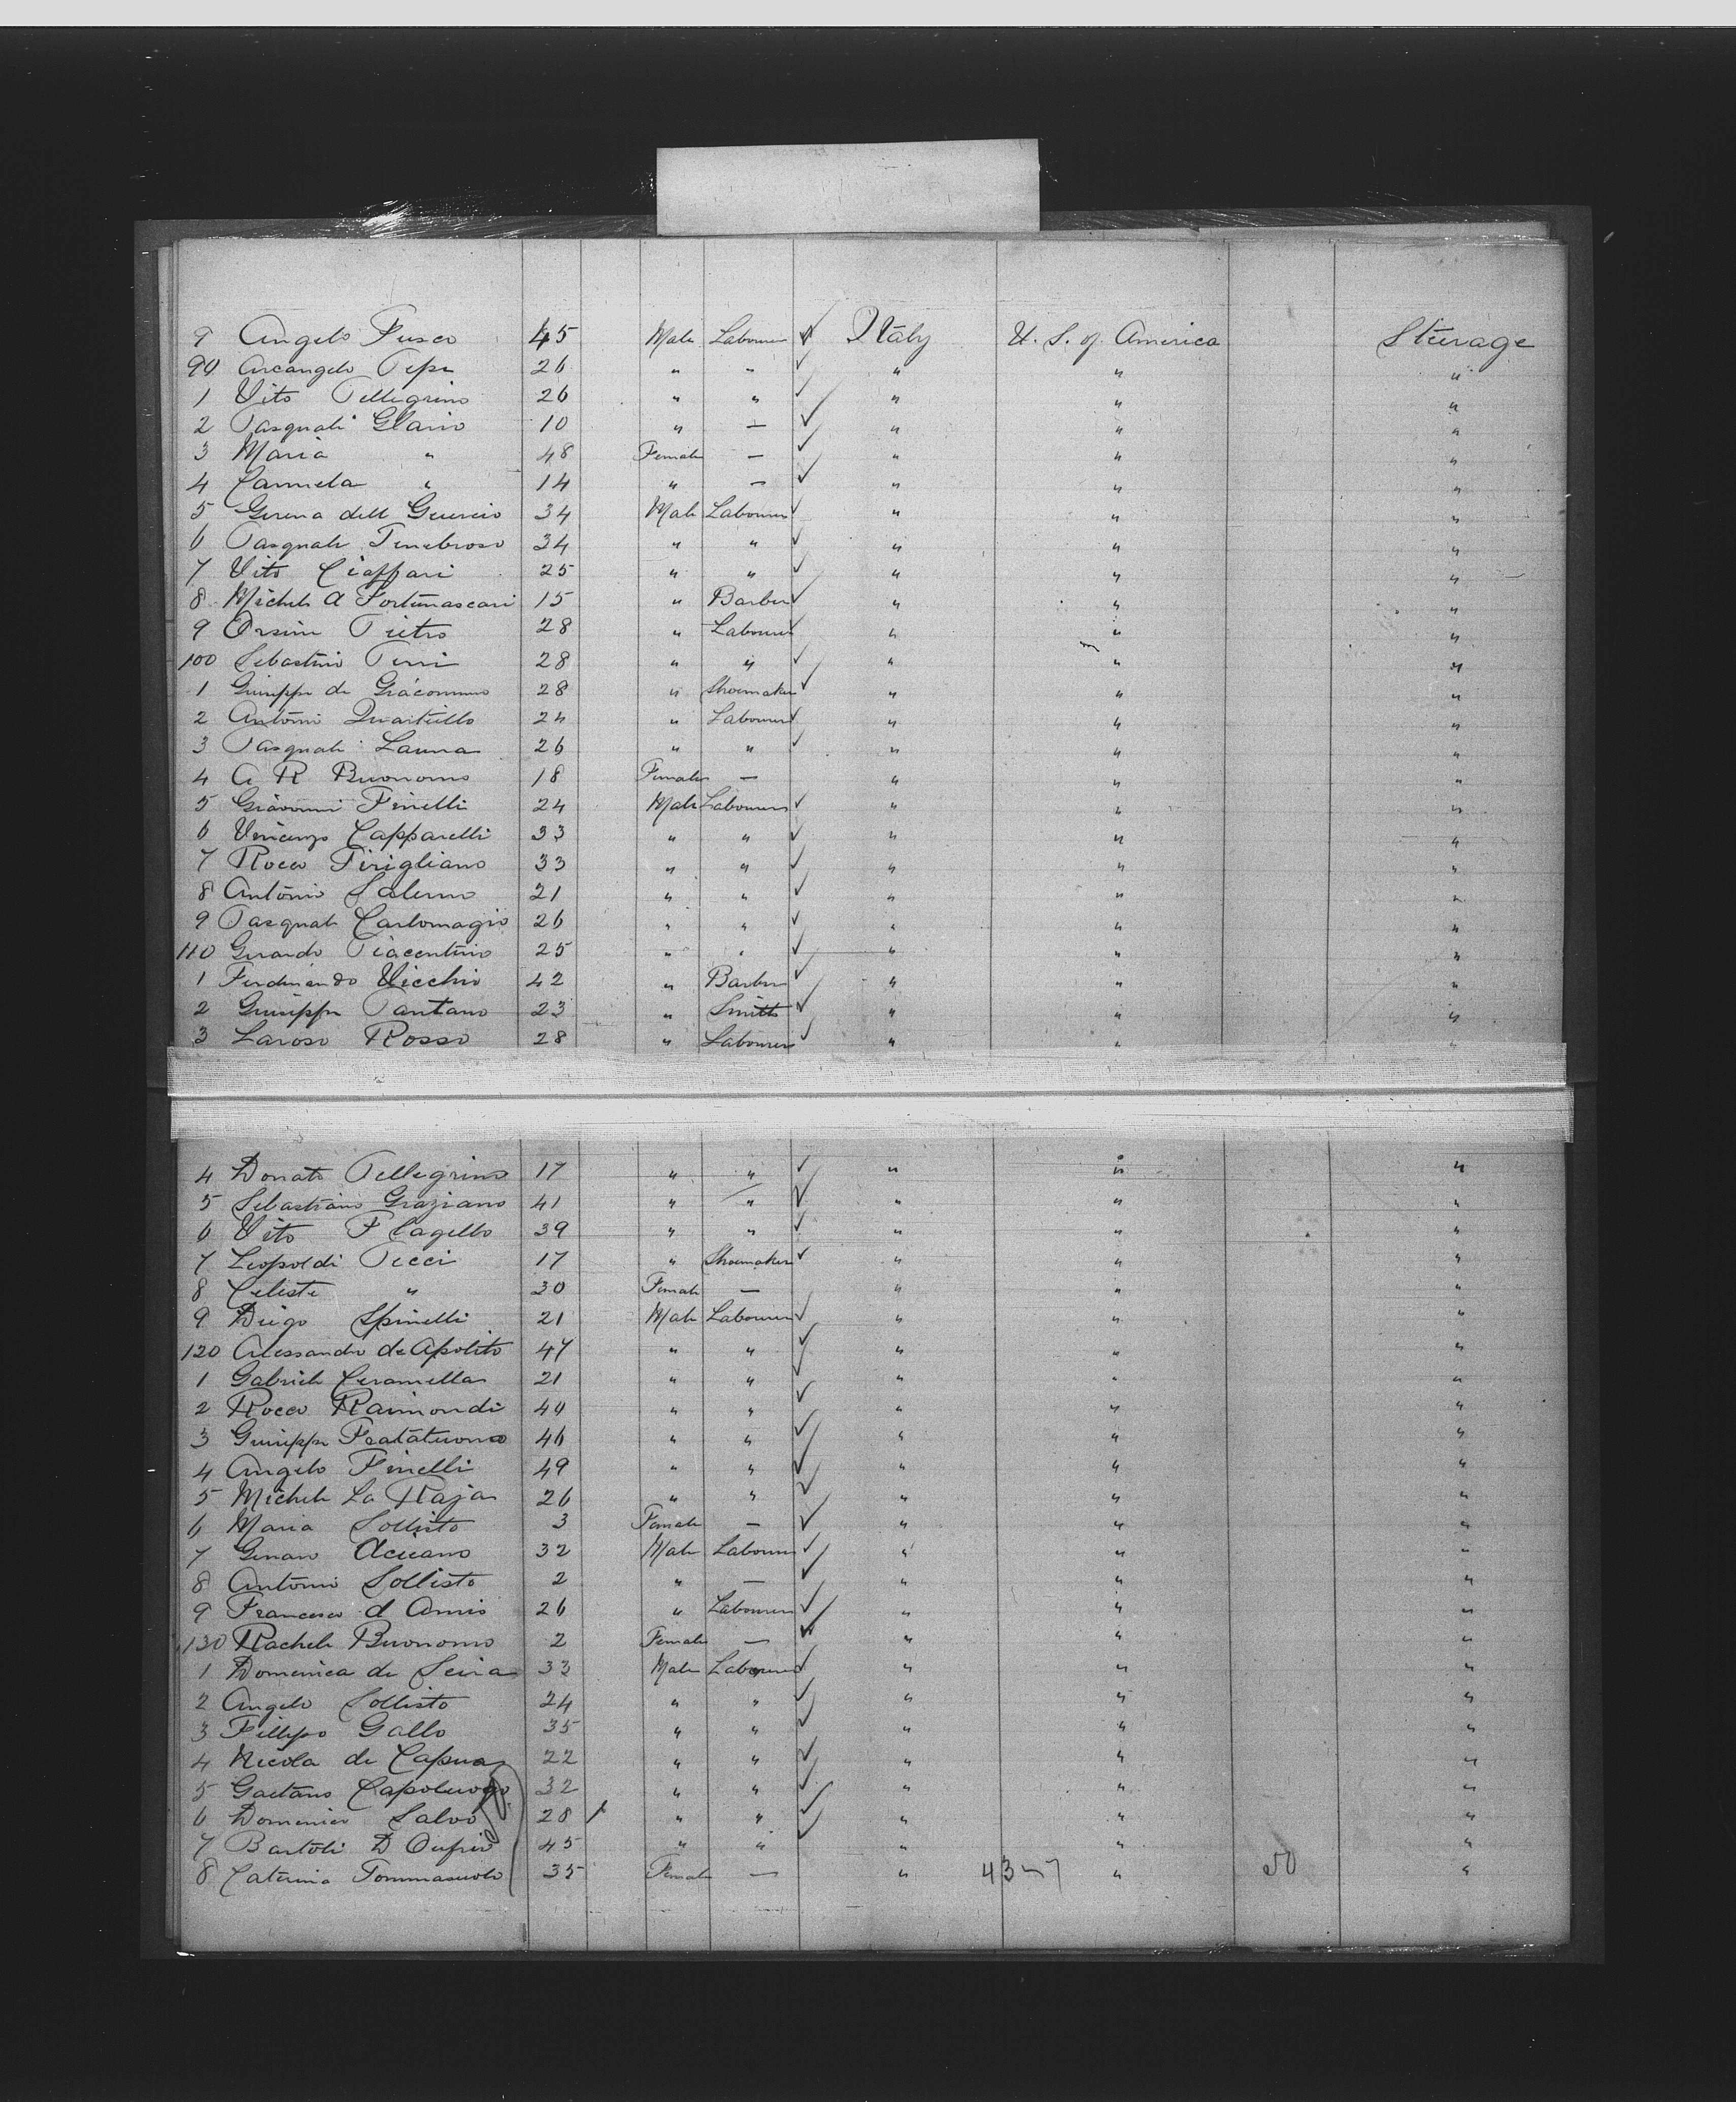 9 Angelo Fusco 45 Male Labourer ✓ Italy U. S. of America Steerage
90 Arcangelo Pepe 26 " " ✓ " " "
1 Vito Pellegrino 26 " " ✓ " " "
2 Pasquali 10 " — ✓ " " "
3 Maria " 48 Female — ✓ " " "
4 Carmela " 14 " — ✓ " " "
5 dell Guercio 34 Male Labourer ✓ " " "
6 Pasquale Tenebroso 34 " " ✓ " " "
7 Vito Ciaffari 25 " " ✓ " " "
8 Michele A 15 " Barber ✓ " " "
9 Orsini Pietro 28 " Labourer ✓ " " "
100 28 " " ✓ " " "
1 Giuseppe de Giacommo 28 " Shoemaker ✓ " " "
2 Antonio 24 " Labourer ✓ " " "
3 Pasquali Lauria 26 " " ✓ " " "
4 A R Buonomo 18 Female — " " "
5 Giovanni Finelli 24 Male Labourer ✓ " " "
6 Vincenzo Capparelli 33 " " ✓ " " "
7 Rocco Tirigliano 33 " " ✓ " " "
8 Antonio Salerno 21 " " ✓ " " "
9 Pasquale Carlomagio 26 " " ✓ " " "
110 Gerardo Piacentino 25 " " ✓ " " "
1 Ferdinando Vicchio 42 " Barber ✓ " " "
2 Giuseppe Pantano 23 " Smith ✓ " " "
3 Laroso Rosso 28 " Labourer ✓ " " "
4 Donato Pellegrino 17 " " ✓ " " "
5 Sebastiano Graziano 41 " " ✓ " " "
6 Vito F Cagello 39 " " ✓ " " "
7 Leopoldi Pecci 17 " Shoemaker ✓ " " "
8 Celeste " 30 Female — " " "
9 Diego Spinelli 21 Male Labourer ✓ " " "
120 Alessandro de Apolito 47 " " ✓ " " "
1 Gabriele Ceramella 21 " " ✓ " " "
2 Rocco Raimondi 40 " " ✓ " " "
3 Giuseppe 46 " " ✓ " " "
4 Angelo Finelli 49 " " ✓ " " "
5 Michele La Raja 26 " " ✓ " " "
6 Maria Sollisto 3 Female — ✓ " " "
7 32 Male Labourer ✓ " " "
8 Antonio Sollisto 2 " — ✓ " " "
9 Francesco d Amis 26 " Labourer ✓ " " "
130 Rachele Buonomo 2 Female — ✓ " " "
1 Domenica de 33 Male Labourer ✓ " " "
2 Angelo Sollisto 24 " " ✓ " " "
3 Fillipo Gallo 35 " " ✓ " " "
4 Nicola de Capua 22 " " ✓ " " "
5 Gaetano 32 " " ✓ " " "
6 Domenico Salvo 28 " " ✓ " " "
7 Bartoli D 45 " " ✓ " " "
8 Caterina 35 Female — " 43 " 50 "